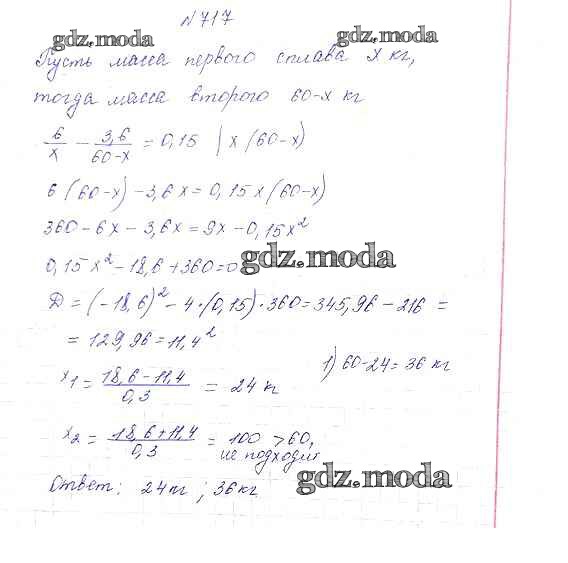 №717
gdz.moda
gdz.moda
Пусть масса первого сплава x кг,
тогда масса второго 60-x кг
6/x - 3,6/(60-x) = 0,15 | x(60-x)
6(60-x) - 3,6x = 0,15x(60-x)
360 - 6x - 3,6x = 9x - 0,15x²
gdz.moda
0,15x² - 18,6 + 360 = 0
D = (-18,6)² - 4·(0,15)·360 = 345,96 - 216 =
= 129,96 = 11,4²
x₁ = (18,6 - 11,4)/0,3 = 24 кг
1) 60-24 = 36 кг
x₂ = (18,6 + 11,4)/0,3 = 100 > 60,
не подходит
gdz.moda
Ответ: 24кг ; 36кг